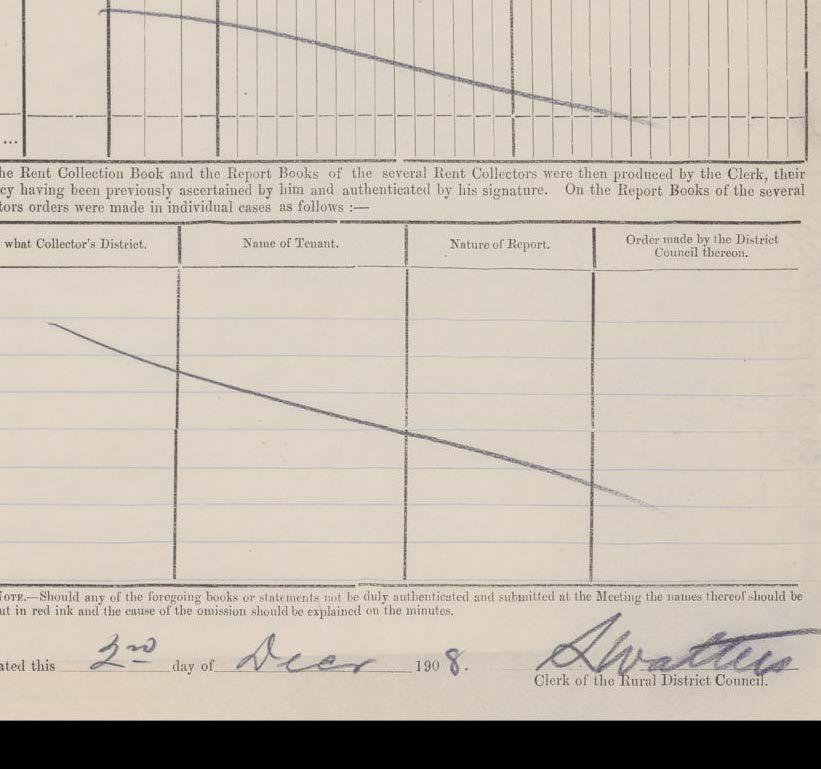 ...
he Rent Collection Book and the Report Books of the several Rent Collectors were then produced by the Clerk, their
cy having been previously ascertained by him and authenticated by his signature. On the Report Books of the several
tors orders were made in individual cases as follows :—
what Collector's District. Name of Tenant. Nature of Report. Order made by the District Council thereon.
OTE.—Should any of the foregoing books or statements not be duly authenticated and submitted at the Meeting the names thereof should be
ut in red ink and the cause of the omission should be explained on the minutes.
ated this day of Decr 1908.
Clerk of the Rural District Council.